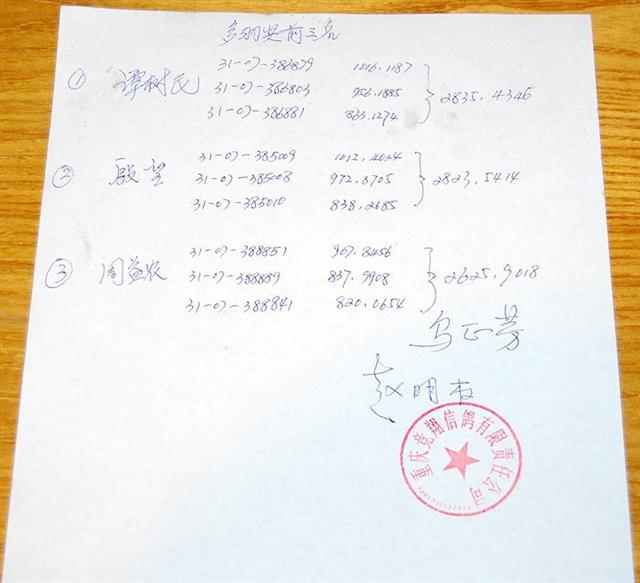 多羽奖前三名
① 谭树民 31-07-386879 1016.1187
31-07-386803 956.1885 2835.4346
31-07-386881 863.1274
② 殷望 31-07-385009 1012.4024
31-07-385008 972.8705 2823.5414
31-07-385010 838.2685
③ 周益农 31-07-388851 967.8456
31-07-388889 837.9908 2625.9018
31-07-388841 820.0654
乌正芳
赵明
重庆竞翔信鸽有限责任公司